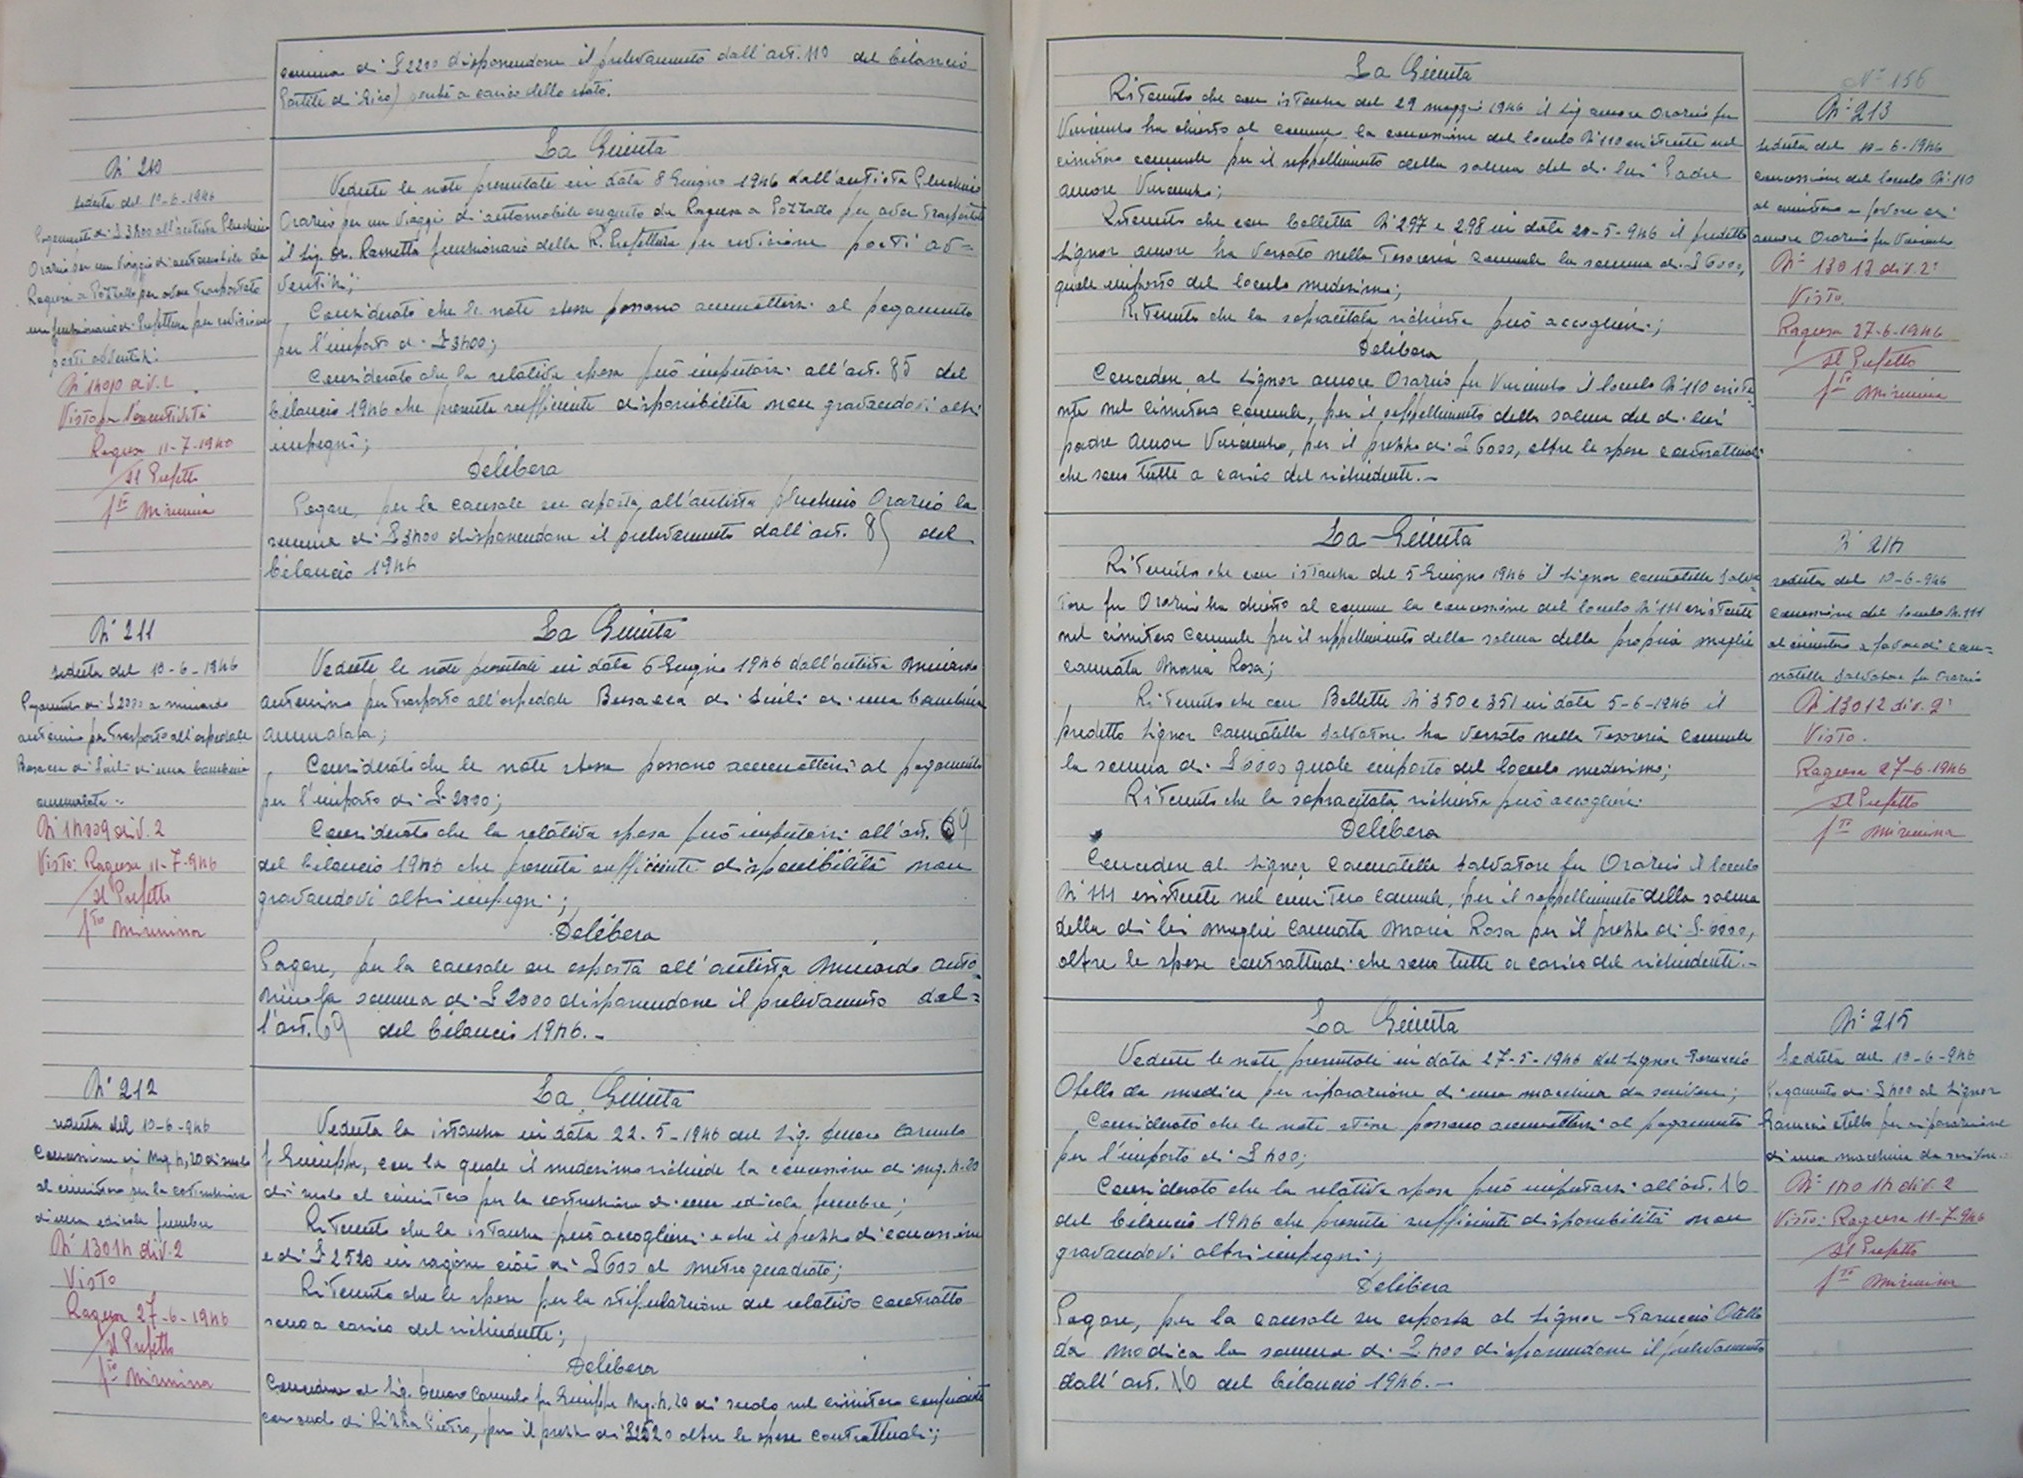 somma di £ 2200 disponendone il prelevamento dall'art. 110 del bilancio
Partite di Giro) perchè a carico dello stato.
N° 210
seduta del 10-6-1946
Pagamento di £ 3400 all'autista Pluchino
Orazio per un viaggio di automobile da
Ragusa a Pozzallo per avere trasportato
un funzionario di Prefettura per revisione
posti avventizi.
N° 14010 div. 2
Visto per l'esecutività
Ragusa 11-7-1946
Il Prefetto
f.to Mirmina
La Giunta
Vedute le note presentate in data 8 Giugno 1946 dall'autista Pluchino
Orazio per un viaggio di automobile eseguito da Ragusa a Pozzallo per aver trasportato
il Sig. Dr. Rametta funzionario della R. Prefettura per revisione posti av=
ventizi;
Considerato che le note stesse possono ammettersi al pagamento
per l'importo di £ 3400;
Considerato che la relativa spesa può imputarsi all'art. 85 del
bilancio 1946 che presenta sufficiente disponibilità non gravandovi altri
impegni;
Delibera
Pagare, per la causale su esposta, all'autista Pluchino Orazio la
somma di £ 3400 disponendone il prelevamento dall'art. 85 del
bilancio 1946
N° 211
seduta del 10-6-1946
Pagamento di £ 2000 a
Antonino per trasporto all'ospedale
Busacca di Scicli di una bambina
ammalata.
N° 14009 div. 2
Visto: Ragusa 11-7-946
Il Prefetto
f.to Mirmina
La Giunta
Vedute le note presentate in data 6 Giugno 1946 dall'autista
Antonino per trasporto all'ospedale Busacca di Scicli di una bambina
ammalata;
Considerato che le note stesse possono ammettersi al pagamento
per l'importo di £ 2000;
Considerato che la relativa spesa può imputarsi all'art. 69
del bilancio 1946 che presenta sufficiente disponibilità non
gravandovi altri impegni;
Delibera
Pagare, per la causale su esposta all'autista Anto=
nino la somma di £ 2000 disponendone il prelevamento dal=
l'art. 69 del bilancio 1946.-
N° 212
seduta del 10-6-946
Concessione di mq. 4,20 di suolo
al cimitero per la costruzione
di una edicola funebre
N° 13014 div. 2
Visto
Ragusa 27-6-1946
Il Prefetto
f.to Mirmina
La Giunta
Veduta la istanza in data 22-5-1946 del Sig. Carmelo
f. Giuseppe, con la quale il medesimo richiede la concessione di mq. 4.20
di suolo al cimitero per la costruzione di una edicola funebre;
Ritenuto che la istanza può accogliersi e che il prezzo di concessione
è di £ 2520 in ragione cioè di £ 600 al metro quadrato;
Ritenuto che le spese per la stipulazione del relativo contratto
sono a carico del richiedente;
Delibera
Concedere al Sig. Carmelo fu Giuseppe mq. 4,20 di suolo nel cimitero confinante
con suolo di Rizza Pietro, per il prezzo di £ 2520 oltre le spese contrattuali;
N° 156
N° 213
seduta del 10-6-1946
concessione del loculo N° 110
al cimitero a favore di
Amore Orazio fu Vincenzo
N° 13013 div. 2ª
Visto.
Ragusa 27-6-1946
Il Prefetto
f.to Mirmina
La Giunta
Ritenuto che con istanza del 29 maggio 1946 il Sig Amore Orazio fu
Vincenzo ha chiesto al comune la concessione del loculo N° 110 esistente nel
cimitero comunale per il seppellimento della salma del di lui Padre
Amore Vincenzo;
Ritenuto che con bolletta N° 297 e 298 in data 20-5-946 il predetto
Signor Amore ha versato nella Tesoreria comunale la somma di £ 6000,
quale importo del loculo medesimo;
Ritenuto che la sopracitata richiesta può accogliersi;
Delibera
Concedere al Signor Amore Orazio fu Vincenzo il loculo N° 110 esiste=
nte nel cimitero comunale, per il seppellimento della salma del di lui
padre Amore Vincenzo, per il prezzo di £ 6000, oltre le spese contrattuali
che sono tutte a carico del richiedente.-
N° 214
seduta del 10-6-946
concessione del loculo N. 111
al cimitero a favore di Can=
natella Salvatore fu Orazio
N° 13012 div. 2ª
Visto.
Ragusa 27-6-1946
Il Prefetto
f.to Mirmina
La Giunta
Ritenuto che con istanza del 5 Giugno 1946 il Signor Cannatella Salva
tore fu Orazio ha chiesto al comune la concessione del loculo N° 111 esistente
nel cimitero comunale per il seppellimento della salma della propria moglie
Cannata Maria Rosa;
Ritenuto che con Bollette N° 350 e 351 in data 5-6-1946 il
predetto Signor Cannatella Salvatore ha versato nella Tesoreria comunale
la somma di £ 6000 quale importo del loculo medesimo;
Ritenuto che la sopracitata richiesta può accogliersi
Delibera
Concedere al Signor Cannatella Salvatore fu Orazio il loculo
N° 111 esistente nel cimitero comunale, per il seppellimento della salma
della di lui moglie Cannata Maria Rosa per il prezzo di £ 6000,
oltre le spese contrattuali che sono tutte a carico del richiedente.-
N° 215
Seduta del 10-6-946
Pagamento di £ 400 al Signor
Otello per riparazione
di una macchina da scrivere
N° 14014 div. 2
Visto: Ragusa 11-7-946
Il Prefetto
f.to Mirmina
La Giunta
Vedute le note presentate in data 27-5-1946 dal Signor
Otello da Modica per riparazione di una macchina da scrivere;
Considerato che le note stesse possono ammettersi al pagamento
per l'importo di £ 400;
Considerato che la relativa spesa può imputarsi all'art. 16
del bilancio 1946 che presenta sufficiente disponibilità non
gravandovi altri impegni;
Delibera
Pagare, per la causale su esposta al Signor Otello
da Modica la somma di £ 400 disponendone il prelevamento
dall'art. 16 del bilancio 1946.-